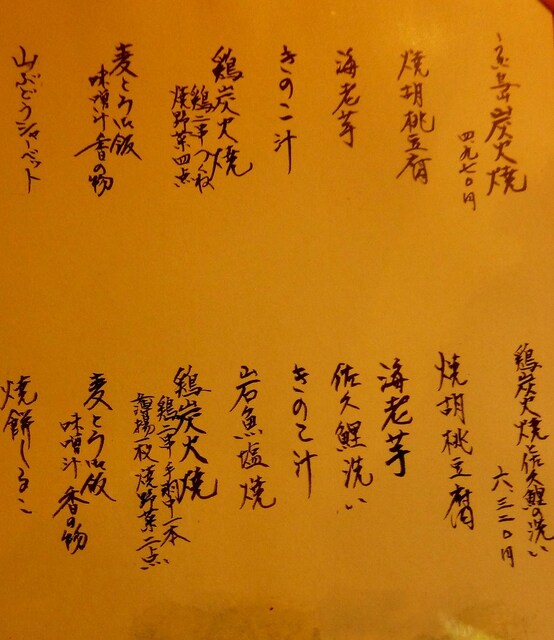 鶏炭火焼
四九七〇円
焼胡桃豆腐
海老芋
きのこ汁
鶏炭火焼
鶏二串つくね
焼野菜四点
麦とろ御飯
味噌汁 香の物
山ぶどうシャーベット
鶏炭火焼と佐久鯉の洗い
六、三二〇円
焼胡桃豆腐
海老芋
佐久鯉洗い
きのこ汁
山岩魚塩焼
鶏炭火焼
鶏二串 手羽中一本
薄揚一枚 焼野菜二点
麦とろ御飯
味噌汁 香の物
焼餅しるこ